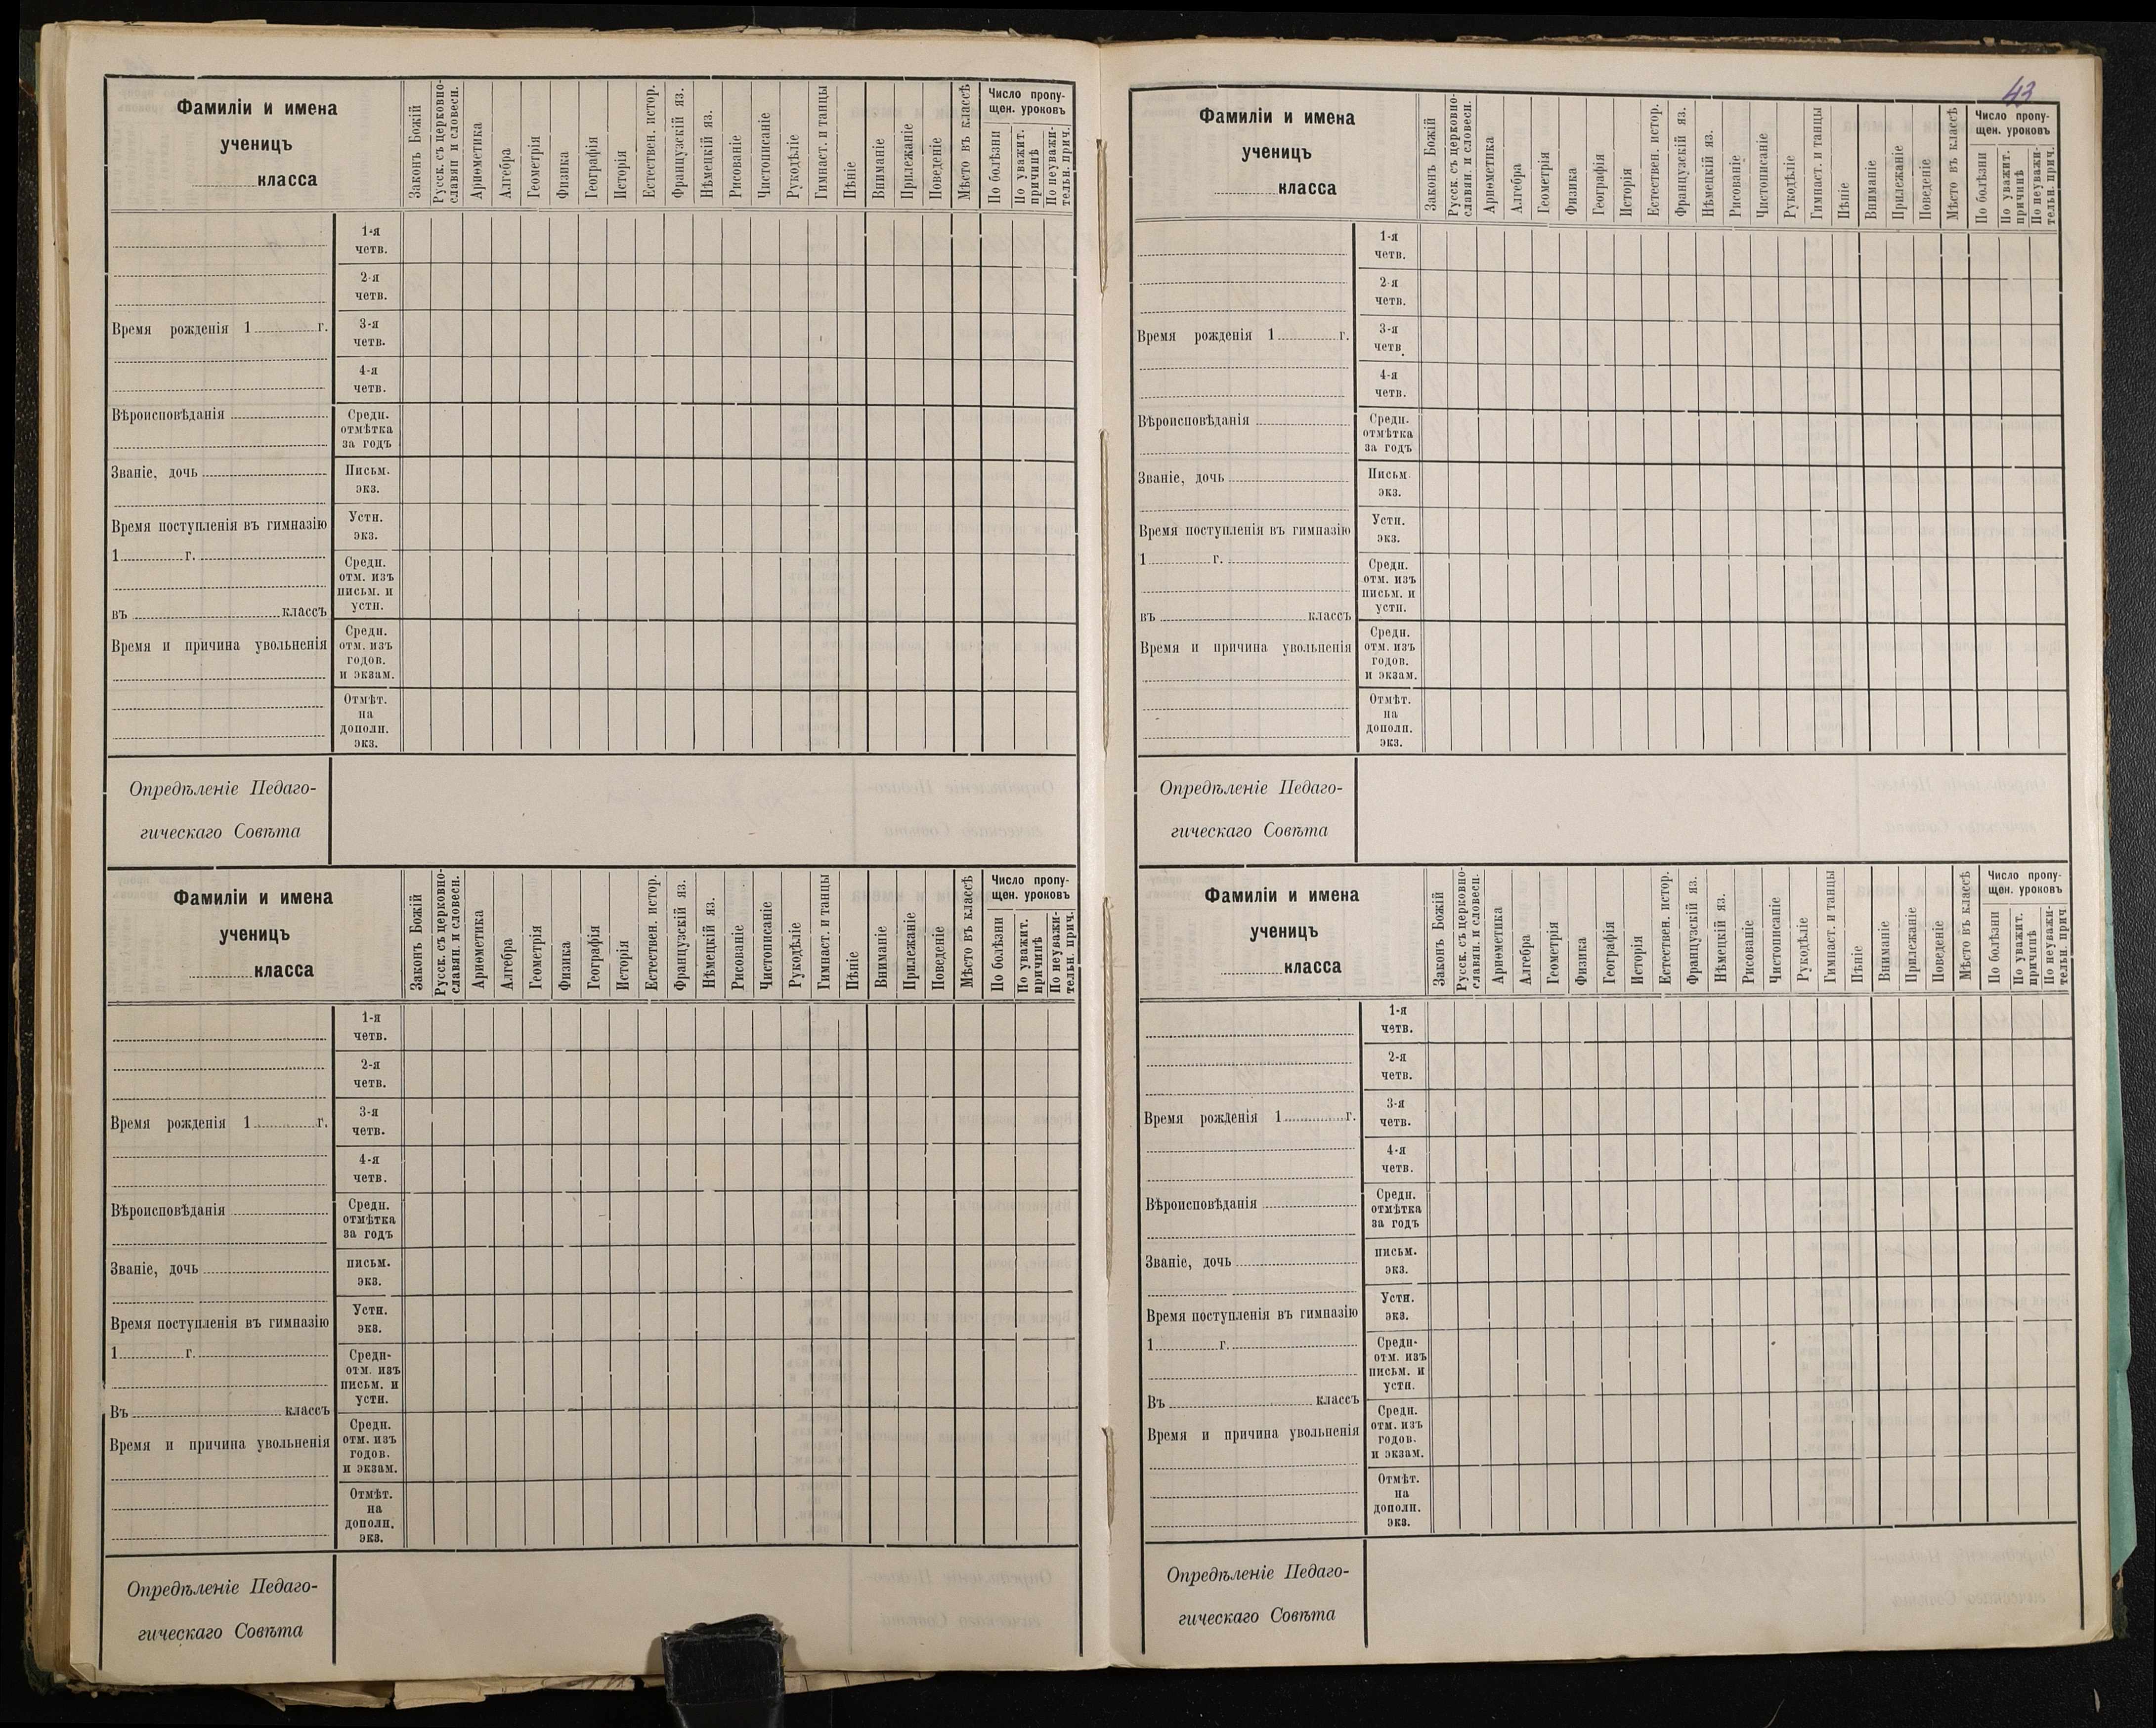 43
Фамиліи и имена
ученицъ
класса
Законъ Божій
Русск. съ церковно-
славян и словесн.
Ариѳметика
Алгебра
Геометрія
Физика
Географія
Исторія
Естествен. истор.
Французскій яз.
Нѣмецкій яз.
Рисованіе
Чистописаніе
Рукодѣліе
Гимнаст. и танцы
Пѣніе
Вниманіе
Прилежаніе
Поведеніе
Мѣсто въ классѣ
Число пропу-
щен. уроковъ
По болѣзни
По уважит.
причинѣ
По неуважи-
тельн. прич.
1-я
четв.
2-я
четв.
Время рожденія 1 г.
3-я
четв.
4-я
четв.
Вѣроисповѣданія
Средн.
отмѣтка
за годъ
Званіе, дочь
Письм.
экз.
Время поступленія въ гимназію
1 г.
Устн.
экз.
Средн.
отм. изъ
письм. и
устн.
въ классъ
Время и причина увольненія
Средн.
отм. изъ
годов.
и экзам.
Отмѣт.
на
дополн.
экз.
Опредѣленіе Педаго-
гическаго Совѣта
Фамиліи и имена
ученицъ
класса
Законъ Божій
Русск. съ церковно-
славян. и словесн.
Ариѳметика
Алгебра
Геометрія
Физика
Географія
Исторія
Естествен. истор.
Французскій яз.
Нѣмецкій яз.
Рисованіе
Чистописаніе
Рукодѣліе
Гимнаст. и танцы
Пѣніе
Вниманіе
Прилежаніе
Поведеніе
Мѣсто въ классѣ
Число пропу-
щен. уроковъ
По болѣзни
По уважит.
причинѣ
По неуважи-
тельн. прич.
1-я
четв.
2-я
четв.
Время рожденія 1 г.
3-я
четв.
4-я
четв.
Вѣроисповѣданія
Средн.
отмѣтка
за годъ
Званіе, дочь
письм.
экз.
Время поступленія въ гимназію
1 г.
Устн.
экз.
Средн-
отм. изъ
письм. и
устн.
Въ классъ
Время и причина увольненія
Средн.
отм. изъ
годов.
и экзам.
Отмѣт.
на
дополн.
экз.
Опредѣленіе Педаго-
гическаго Совѣта
Фамиліи и имена
ученицъ
класса
Законъ Божій
Русск. съ церковно-
славян. и словесн.
Ариѳметика
Алгебра
Геометрія
Физика
Географія
Исторія
Естествен. истор.
Французскій яз.
Нѣмецкій яз.
Рисованіе
Чистописаніе
Рукодѣліе
Гимнаст. и танцы
Пѣніе
Вниманіе
Прилежаніе
Поведеніе
Мѣсто въ классѣ
Число пропу-
щен. уроковъ
По болѣзни
По уважит.
причинѣ
По неуважи-
тельн. прич.
1-я
четв.
2-я
четв.
Время рожденія 1 г.
3-я
четв.
4-я
четв.
Вѣроисповѣданія
Средн.
отмѣтка
за годъ
Званіе, дочь
Письм.
экз.
Время поступленія въ гимназію
1 г.
Устн.
экз.
Средн.
отм. изъ
письм. и
устн.
въ классъ
Время и причина увольненія
Средн.
отм. изъ
годов.
и экзам.
Отмѣт.
на
дополн.
экз.
Опредѣленіе Педаго-
гическаго Совѣта
Фамиліи и имена
ученицъ
класса
Законъ Божій
Русск. съ церковно-
славян. и словесн.
Ариѳметика
Алгебра
Геометрія
Физика
Географія
Исторія
Естествен. истор.
Французскій яз.
Нѣмецкій яз.
Рисованіе
Чистописаніе
Рукодѣліе
Гимнаст. и танцы
Пѣніе
Вниманіе
Прилежаніе
Поведеніе
Мѣсто въ классѣ
Число пропу-
щен. уроковъ
По болѣзни
По уважит.
причинѣ
По неуважи-
тельн. прич
1-я
четв.
2-я
четв.
Время рожденія 1 г.
3-я
четв.
4-я
четв.
Вѣроисповѣданія
Средн.
отмѣтка
за годъ
Званіе, дочь
письм.
экз.
Время поступленія въ гимназію
1 г.
Устн.
экз.
Средн-
отм. изъ
письм. и
устн.
Въ классъ
Время и причина увольненія
Средн.
отм. изъ
годов.
и экзам.
Отмѣт.
на
дополн.
экз.
Опредѣленіе Педаго-
гическаго Совѣта